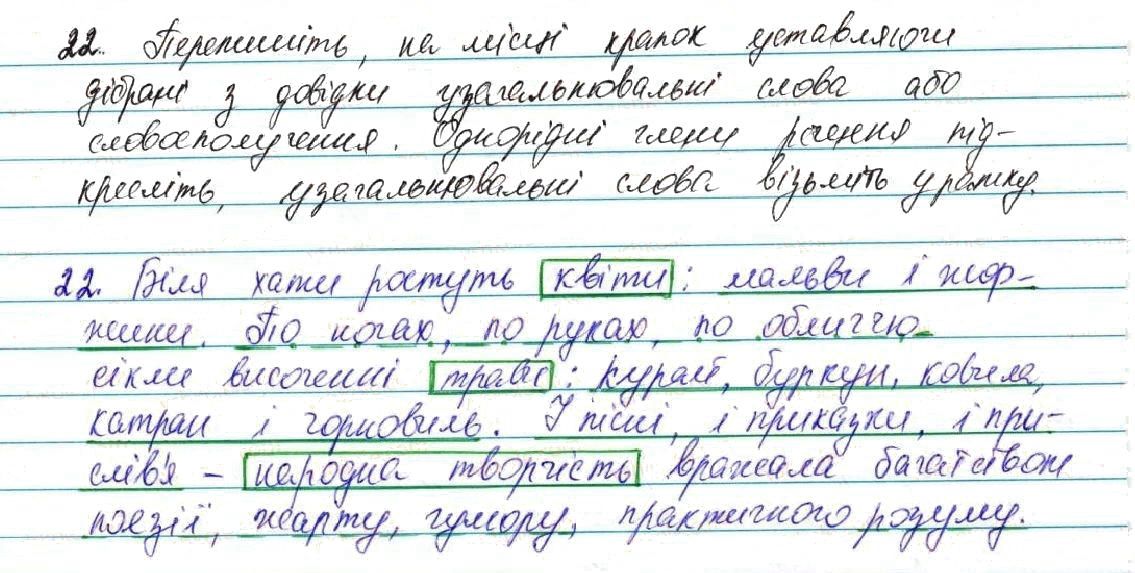 22. Перепишіть, на місці крапок уставляючи
дібрані з довідки узагальнювальні слова або
словосполучення. Однорідні члени речення під-
кресліть, узагальнювальні слова візьміть у рамку.
22. Біля хати ростуть квіти: мальви і жор-
жини. По ногах, по руках, по обличчю
сікли височенні трави: курай, буркун, ковила,
катран і чорнобиль. І пісні, і приказки, і при-
слів'я – народна творчість вражала багатством
поезії, жарту, гумору, практичного розуму.